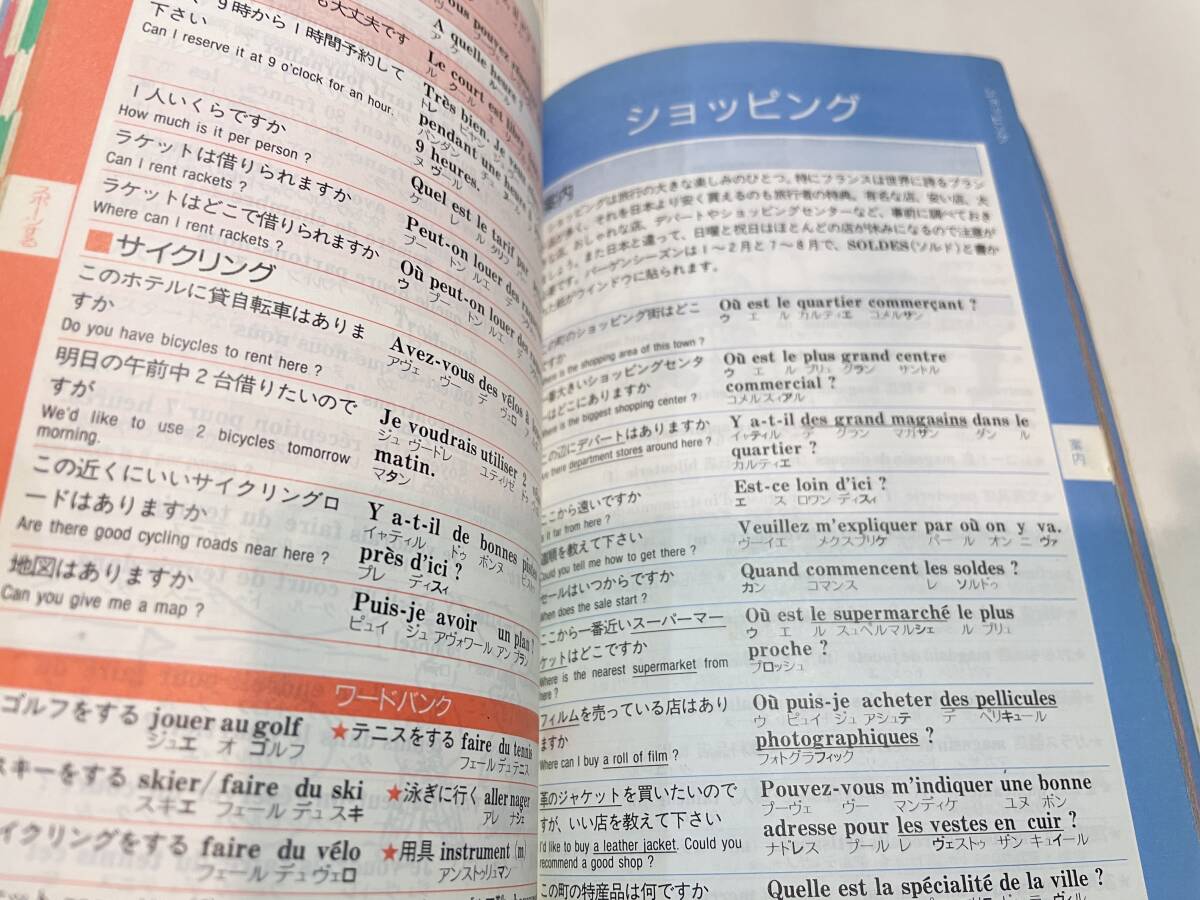 も大丈夫です
9時から1時間予約して
下さい
Can I reserve it at 9 o'clock for an hour.
A quelle heure ?
Le court est
Très bien. Je
pendant une heure
9 heures.
ヌ ヴール
1人いくらですか
How much is it per person ?
Quel est le tarif par
ラケットは借りられますか
Can I rent rackets ?
Peut-on louer des
ラケットはどこで借りられますか
Where can I rent rackets ?
Où peut-on louer des
スポーツする
サイクリング
このホテルに貸自転車はありま
すか
Do you have bicycles to rent here ?
Avez-vous des vélos à
アヴェ ヴー デ ヴェロ ア
明日の午前中2台借りたいので
すが
We'd like to use 2 bicycles tomorrow
morning.
Je voudrais utiliser 2
ジュ ヴードレ ユティリゼ ドゥ
matin.
マタン
この近くにいいサイクリングロ
ードはありますか
Are there good cycling roads near here ?
Y a-t-il de bonnes
イャティル ドゥ ボンヌ
près d'ici ?
プレ ディスィ
地図はありますか
Can you give me a map ?
Puis-je avoir un plan ?
ピュイ ジュ アヴォワール アン プラン
ワードバンク
ゴルフをする jouer au golf
ジュエ オ ゴルフ
★テニスをする faire du tennis
フェール デュ テニス
スキーをする skier/ faire du ski
スキエ フェール デュ スキ
★泳ぎに行く aller nager
アレ ナジェ
イクリングをする faire du vélo
フェール デュ ヴェロ
★用具 instrument (m)
アンストゥリュマン
ショッピング
案内
ョッピングは旅行の大きな楽しみのひとつ。特にフランスは世界に誇るブラン
が多く、それを日本より安く買えるのも旅行者の特典。有名な店、安い店、大
な店、おしゃれな店、デパートやショッピングセンターなど、事前に調べておき
しょう。また日本と違って、日曜と祝日はほとんどの店が休みになるので注意が
。バーゲンシーズンは1〜2月と7〜8月で、SOLDES(ソルド)と書か
た紙がウインドウに貼られます。
の町のショッピング街はどこ
ですか
is the shopping area of this town ?
Où est le quartier commerçant ?
ウ エ ル カルティエ コメルサン
一番大きいショッピングセンタ
ーはどこにありますか
is the biggest shopping center ?
Où est le plus grand centre
ウ エ ル プリュ グラン サントル
commercial ?
コメルスィアル
この辺にデパートはありますか
Are there department stores around here ?
Y a-t-il des grand magasins dans le
イャティル デ グラン マガザン ダン ル
quartier ?
カルティエ
ここから遠いですか
Is it far from here ?
Est-ce loin d'ici ?
エ ス ロワン ディスィ
道順を教えて下さい
Could you tell me how to get there ?
Veuillez m'expliquer par où on y va.
ヴーイエ メクスプリケ パール オン ニ ヴァ
セールはいつからですか
When does the sale start ?
Quand commencent les soldes ?
カン コマンス レ ソルドゥ
ここから一番近いスーパーマー
ケットはどこですか
Where is the nearest supermarket from
here ?
Où est le supermarché le plus
ウ エ ル スュペルマルシェ ル プリュ
proche ?
プロッシュ
フィルムを売っている店はあり
ますか
Where can I buy a roll of film ?
Où puis-je acheter des pellicules
ウ ピュイ ジュ アシュテ デ ペリキュール
photographiques ?
フォトグラフィック
革のジャケットを買いたいので
すが、いい店を教えて下さい
I'd like to buy a leather jacket. Could you
recommend a good shop ?
Pouvez-vous m'indiquer une bonne
プーヴェ ヴー マンディケ ユヌ ボン
adresse pour les vestes en cuir ?
ナドレス プール レ ヴェストゥ ザン キュイール
この町の特産品は何ですか
Quelle est la spécialité de la ville ?
案内